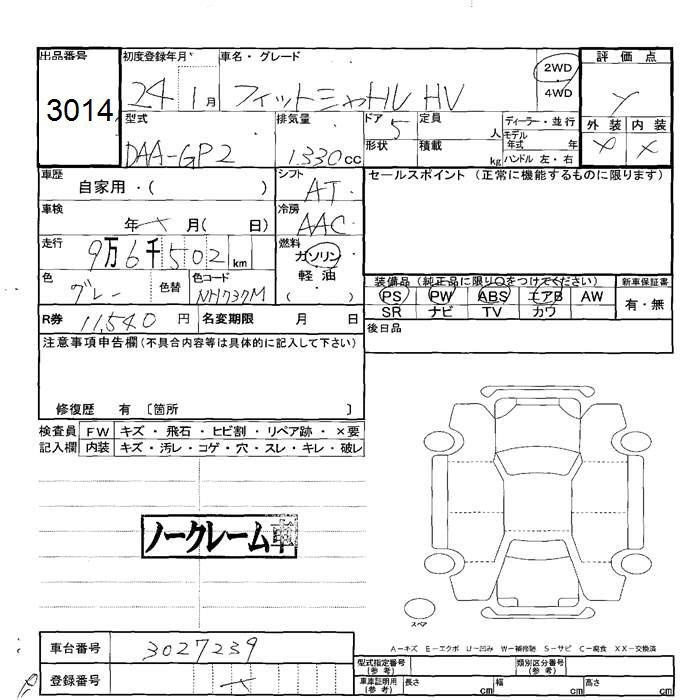 出品番号 3014
初度登録年月 24 1月
車名・グレード フィットシャトルHV HV
2WD
4WD
評価点
外装 内装
型式 DAA-GP2
排気量 1330cc
ドア 5
形状
定員 人
積載 kg
ディーラー・並行
モデル年式 年
ハンドル 左・右
車歴 自家用・( )
シフト AT
セールスポイント (正常に機能するものに限ります)
車検 年 月( 日)
冷房 AAC
走行 9万6千502km
燃料 ガソリン
軽油
( )
色 グレー 色替 色コード NH737M
装備品 (純正品に限り○をつけてください) 新車保証書
PS PW ABS エアB AW 有・無
SR ナビ TV カワ
R券 11,540円 名変期限 月 日
後日品
注意事項申告欄(不具合内容等は具体的に記入して下さい)
修復歴 有 〔箇所 〕
検査員記入欄
FW キズ・飛石・ヒビ割・リペア跡・×要
内装 キズ・汚レ・コゲ・穴・スレ・キレ・破レ
ノークレーム車
スペア
A-キズ E-エクボ U-凹み W-補修跡 S-サビ C-腐食 XX-交換済
車台番号 3027239
登録番号
型式指定番号(参考) 類別区分番号(参考)
車庫証明用(参考) 長さ cm 幅 cm 高さ cm